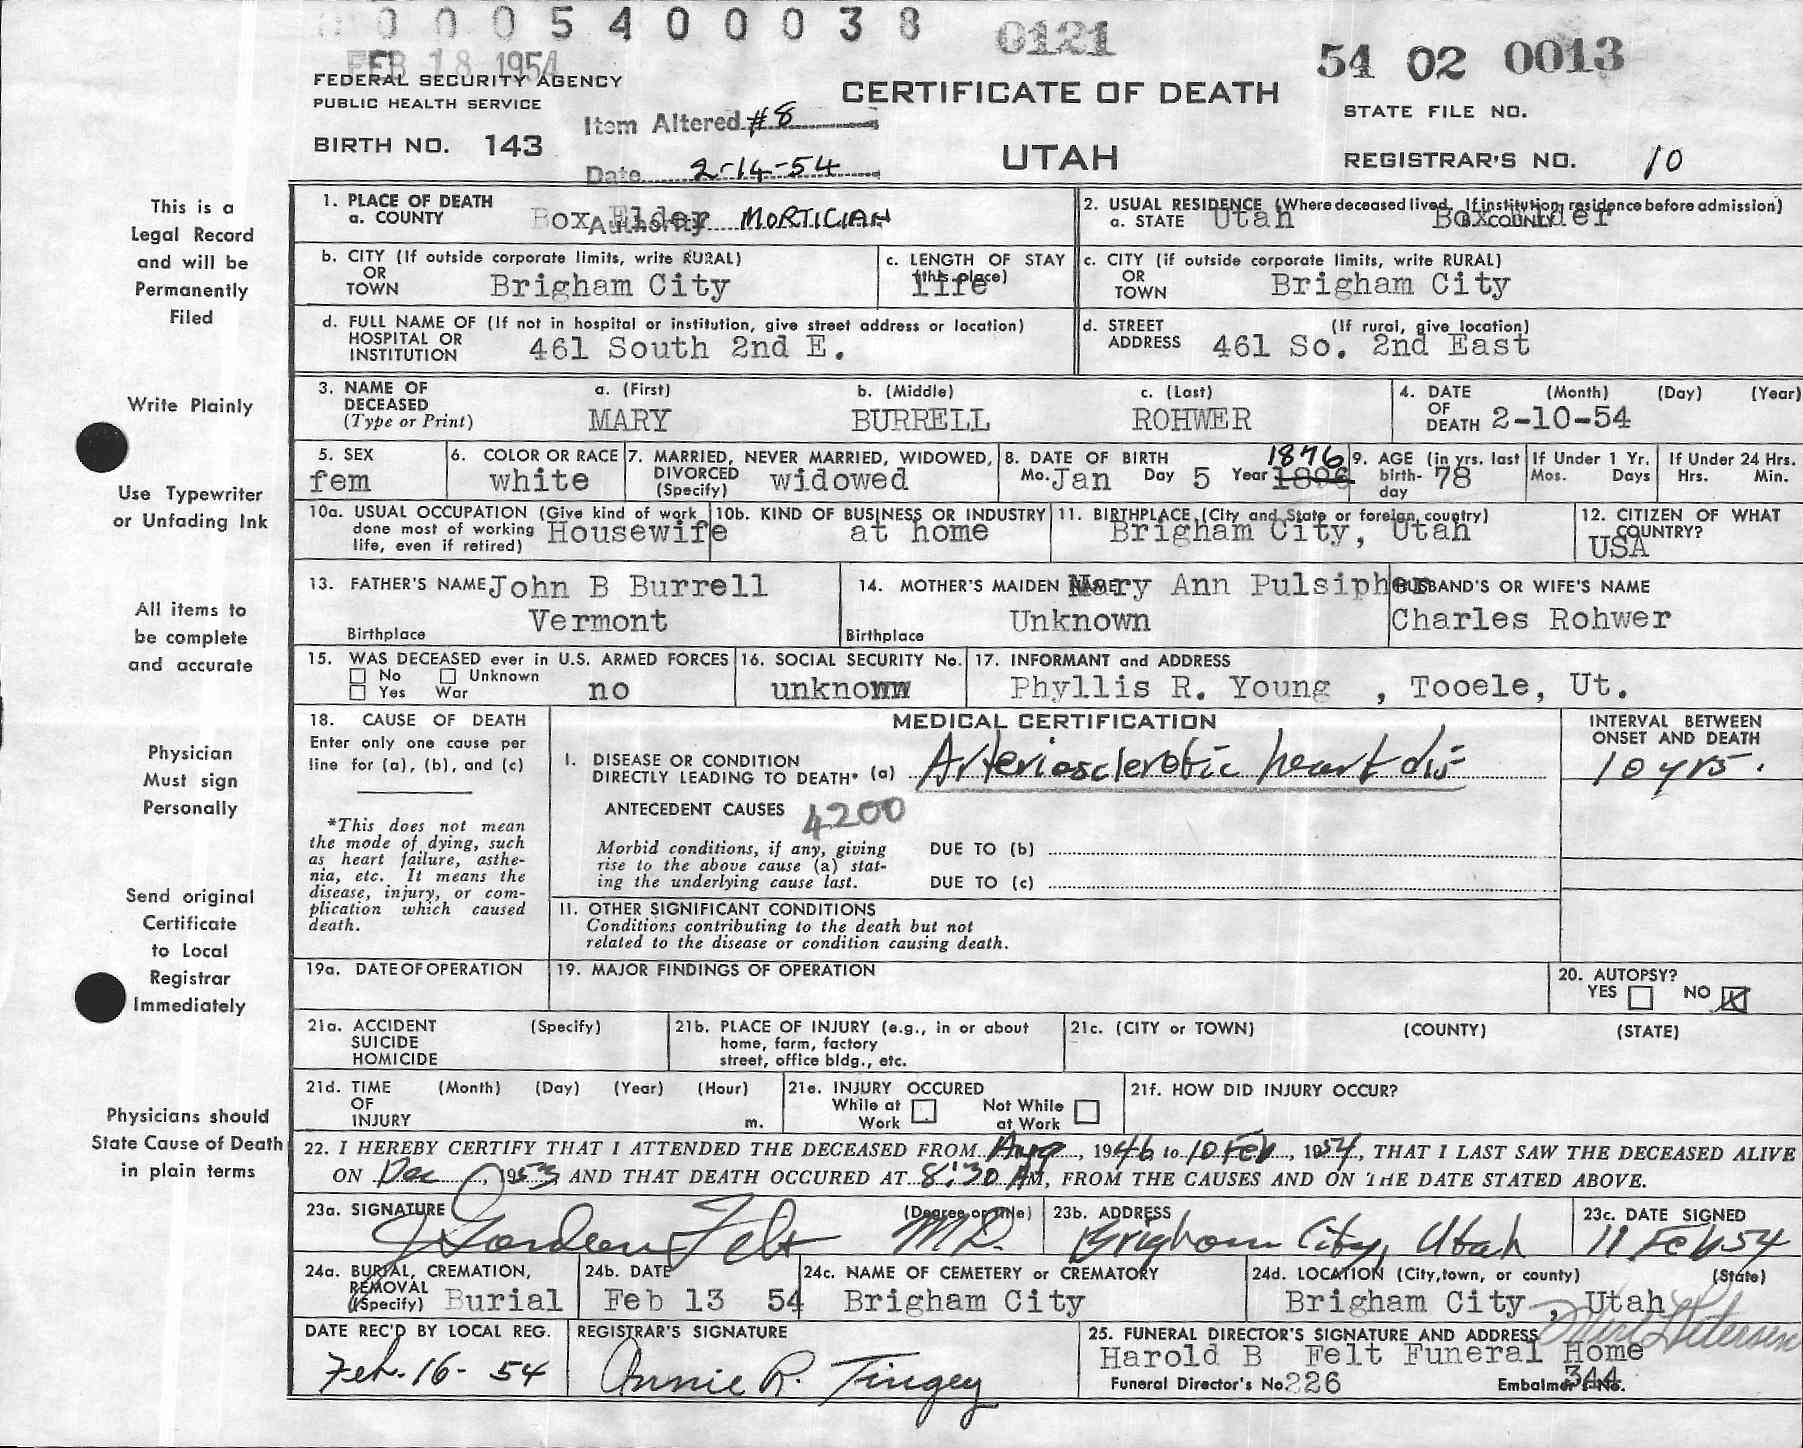 0 0 0 5 4 0 0 0 3 8
0121
54 02 0013
FEB 18 1954
FEDERAL SECURITY AGENCY
PUBLIC HEALTH SERVICE
CERTIFICATE OF DEATH
STATE FILE NO.
Item Altered #8
BIRTH NO. 143
UTAH
REGISTRAR'S NO. 10
Date 2-14-54
This is a
Legal Record
and will be
Permanently
Filed
Write Plainly
Use Typewriter
or Unfading Ink
All items to
be complete
and accurate
Physician
Must sign
Personally
Send original
Certificate
to Local
Registrar
Immediately
Physicians should
State Cause of Death
in plain terms
1. PLACE OF DEATH
a. COUNTY Box Elder
Authority MORTICIAN
2. USUAL RESIDENCE (Where deceased lived. If institution, residence before admission)
a. STATE Utah b. COUNTY Box Elder
b. CITY (If outside corporate limits, write RURAL)
OR
TOWN Brigham City
c. LENGTH OF STAY
(this place)
life
c. CITY (if outside corporate limits, write RURAL)
OR
TOWN Brigham City
d. FULL NAME OF (If not in hospital or institution, give street address or location)
HOSPITAL OR
INSTITUTION 461 South 2nd E.
d. STREET (If rural, give location)
ADDRESS 461 So. 2nd East
3. NAME OF
DECEASED
(Type or Print)
a. (First) b. (Middle) c. (Last)
MARY BURRELL ROHWER
4. DATE (Month) (Day) (Year)
OF
DEATH 2-10-54
5. SEX
fem
6. COLOR OR RACE
white
7. MARRIED, NEVER MARRIED, WIDOWED,
DIVORCED
(Specify) widowed
8. DATE OF BIRTH 1876
Mo. Jan Day 5 Year 1896
9. AGE (in yrs. last
birth-
day 78
If Under 1 Yr.
Mos. Days
If Under 24 Hrs.
Hrs. Min.
10a. USUAL OCCUPATION (Give kind of work
done most of working
life, even if retired) Housewife
10b. KIND OF BUSINESS OR INDUSTRY
at home
11. BIRTHPLACE (City and State or foreign country)
Brigham City, Utah
12. CITIZEN OF WHAT
COUNTRY?
USA
13. FATHER'S NAME John B Burrell
Birthplace Vermont
14. MOTHER'S MAIDEN NAME Mary Ann Pulsipher
Birthplace Unknown
HUSBAND'S OR WIFE'S NAME
Charles Rohwer
15. WAS DECEASED ever in U.S. ARMED FORCES
No Unknown
Yes War no
16. SOCIAL SECURITY No.
unknown
17. INFORMANT and ADDRESS
Phyllis R. Young , Tooele, Ut.
18. CAUSE OF DEATH
Enter only one cause per
line for (a), (b), and (c)
*This does not mean
the mode of dying, such
as heart failure, asthe-
nia, etc. It means the
disease, injury, or com-
plication which caused
death.
MEDICAL CERTIFICATION
I. DISEASE OR CONDITION
DIRECTLY LEADING TO DEATH* (a) Arteriosclerotic heart dis
ANTECEDENT CAUSES 4200
Morbid conditions, if any, giving
rise to the above cause (a) stat-
ing the underlying cause last.
DUE TO (b)
DUE TO (c)
II. OTHER SIGNIFICANT CONDITIONS
Conditions contributing to the death but not
related to the disease or condition causing death.
INTERVAL BETWEEN
ONSET AND DEATH
10 yrs.
19a. DATE OF OPERATION
19. MAJOR FINDINGS OF OPERATION
20. AUTOPSY?
YES NO X
21a. ACCIDENT (Specify)
SUICIDE
HOMICIDE
21b. PLACE OF INJURY (e.g., in or about
home, farm, factory
street, office bldg., etc.
21c. (CITY or TOWN) (COUNTY) (STATE)
21d. TIME (Month) (Day) (Year) (Hour)
OF
INJURY m.
21e. INJURY OCCURED
While at Work Not While at Work
21f. HOW DID INJURY OCCUR?
22. I HEREBY CERTIFY THAT I ATTENDED THE DECEASED FROM Aug, 1946 to 10 Feb, 1954, THAT I LAST SAW THE DECEASED ALIVE
ON Dec, 1953 AND THAT DEATH OCCURED AT 8:30 AM, FROM THE CAUSES AND ON THE DATE STATED ABOVE.
23a. SIGNATURE (Degree or title)
J Gordon Felt M.D.
23b. ADDRESS
Brigham City, Utah
23c. DATE SIGNED
11 Feb 54
24a. BURIAL, CREMATION,
REMOVAL
(Specify) Burial
24b. DATE
Feb 13 54
24c. NAME OF CEMETERY or CREMATORY
Brigham City
24d. LOCATION (City, town, or county) (State)
Brigham City , Utah
DATE REC'D BY LOCAL REG.
Feb. 16- 54
REGISTRAR'S SIGNATURE
Annie R. Tingey
25. FUNERAL DIRECTOR'S SIGNATURE AND ADDRESS
Harold B Felt Funeral Home
Funeral Director's No. 226 Embalmer's No. 344